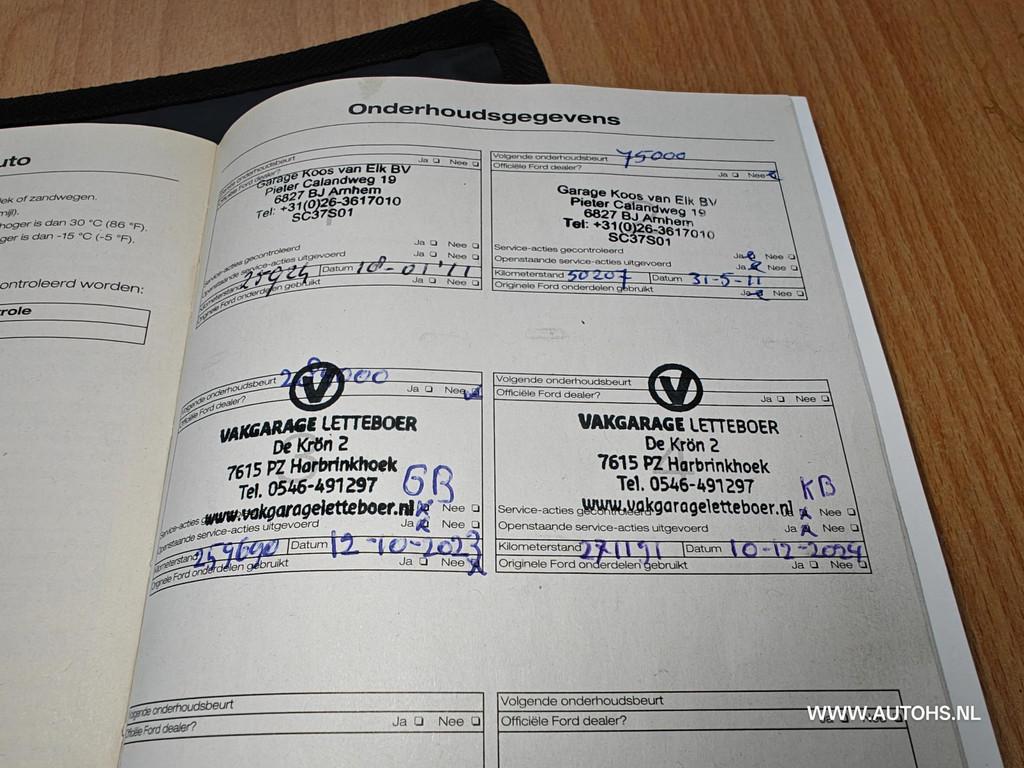 uto
ek of zandwegen.
mijl).
hoger is dan 30 °C (86 °F).
ger is dan -15 °C (-5 °F).
ontroleerd worden:
role
Onderhoudsgegevens
onderhoudsbeurt
dealer? Ja Nee
Garage Koos van Elk BV
Pieter Calandweg 19
6827 BJ Arnhem
Tel: +31(0)26-3617010
SC37S01
Service-acties gecontroleerd Ja Nee
Openstaande service-acties uitgevoerd Ja Nee
Kilometerstand Datum 18-01'11
Originele Ford onderdelen gebruikt Ja Nee
Volgende onderhoudsbeurt 75000
Officiële Ford dealer? Ja Nee
Garage Koos van Elk BV
Pieter Calandweg 19
6827 BJ Arnhem
Tel: +31(0)26-3617010
SC37S01
Service-acties gecontroleerd Ja Nee
Openstaande service-acties uitgevoerd Ja Nee
Kilometerstand 50207 Datum 31-5-11
Originele Ford onderdelen gebruikt Ja Nee
Volgende onderhoudsbeurt
Officiële Ford dealer? Ja Nee
V
VAKGARAGE LETTEBOER
De Krön 2
7615 PZ Harbrinkhoek
Tel. 0546-491297
GB
www.vakgarageletteboer.nl
Service-acties Nee
Openstaande service-acties uitgevoerd Ja Nee
Kilometerstand 259690 Datum 12-10-2023
Originele Ford onderdelen gebruikt Ja Nee
Volgende onderhoudsbeurt
Officiële Ford dealer? Ja Nee
V
VAKGARAGE LETTEBOER
De Krön 2
7615 PZ Harbrinkhoek
Tel. 0546-491297
KB
www.vakgarageletteboer.nl
Service-acties gecontroleerd Nee
Openstaande service-acties uitgevoerd Ja Nee
Kilometerstand 271191 Datum 10-12-2024
Originele Ford onderdelen gebruikt Ja Nee
Volgende onderhoudsbeurt
Officiële Ford dealer? Ja Nee
Volgende onderhoudsbeurt
Officiële Ford dealer? Nee
WWW.AUTOHS.NL